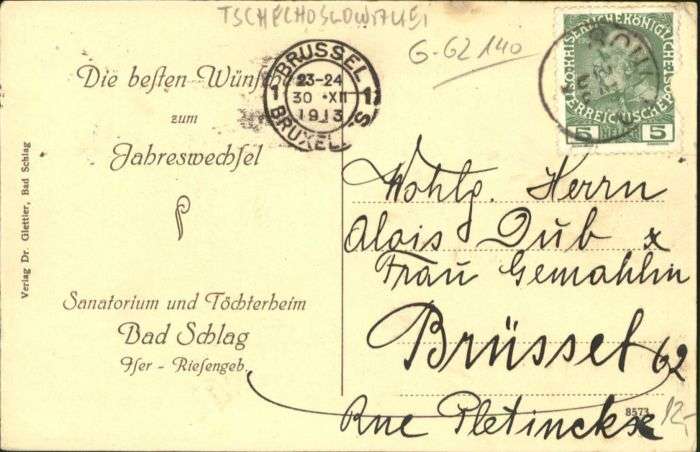 TSCHECHOSLOWAKEI
G-GZ 140
Die besten Wünsche
zum
Jahreswechsel
BRUSSEL
1 23-24 1
30 · XII
1913
BRUXELLES
KAISERLICHE KÖNIGLICHE
ÖSTERREICHISCHE POST
5 HELLER 5
Verlag Dr. Glettler, Bad Schlag
Wohlg. Herrn
Alois Dub &
Frau Gemahlin
Brüssel
62
Rue Pletinckx
Sanatorium und Töchterheim
Bad Schlag
Iser - Riesengeb.
8573
12,-